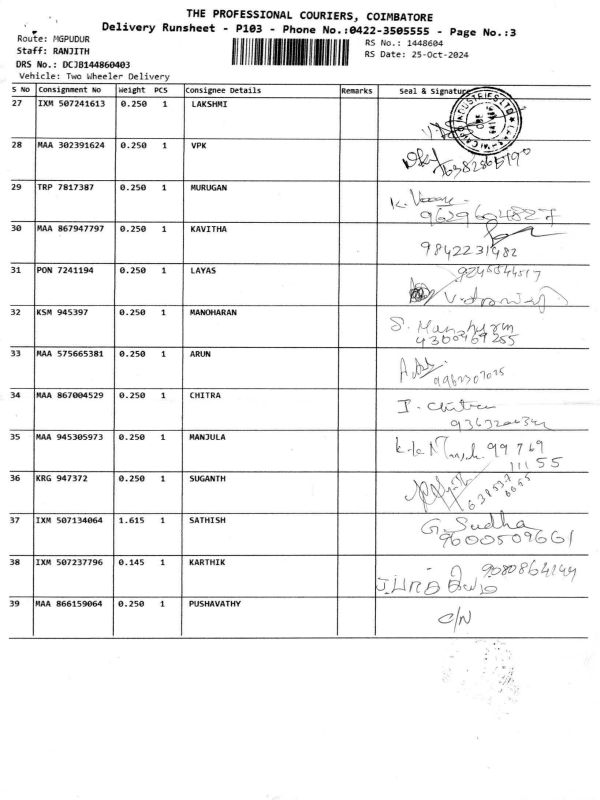 THE PROFESSIONAL COURIERS, COIMBATORE
Delivery Runsheet - P103 - Phone No.:0422-3505555 - Page No.:3
Route: MGPUDUR
RS No.: 1448604
Staff: RANJITH
RS Date: 25-Oct-2024
DRS No.: DCJB144860403
Vehicle: Two Wheeler Delivery
S No Consignment No Weight PCS Consignee Details Remarks Seal & Signature
27 IXM 507241613 0.250 1 LAKSHMI
28 MAA 302391624 0.250 1 VPK
29 TRP 7817387 0.250 1 MURUGAN
9629604827
30 MAA 867947797 0.250 1 KAVITHA
9842231482
31 PON 7241194 0.250 1 LAYAS
32 KSM 945397 0.250 1 MANOHARAN
33 MAA 575665381 0.250 1 ARUN
34 MAA 867004529 0.250 1 CHITRA
J. Chitra
35 MAA 945305973 0.250 1 MANJULA
99769
11155
36 KRG 947372 0.250 1 SUGANTH
37 IXM 507134064 1.615 1 SATHISH
G. Sudha
9600509661
38 IXM 507237796 0.145 1 KARTHIK
39 MAA 866159064 0.250 1 PUSHAVATHY
C/N